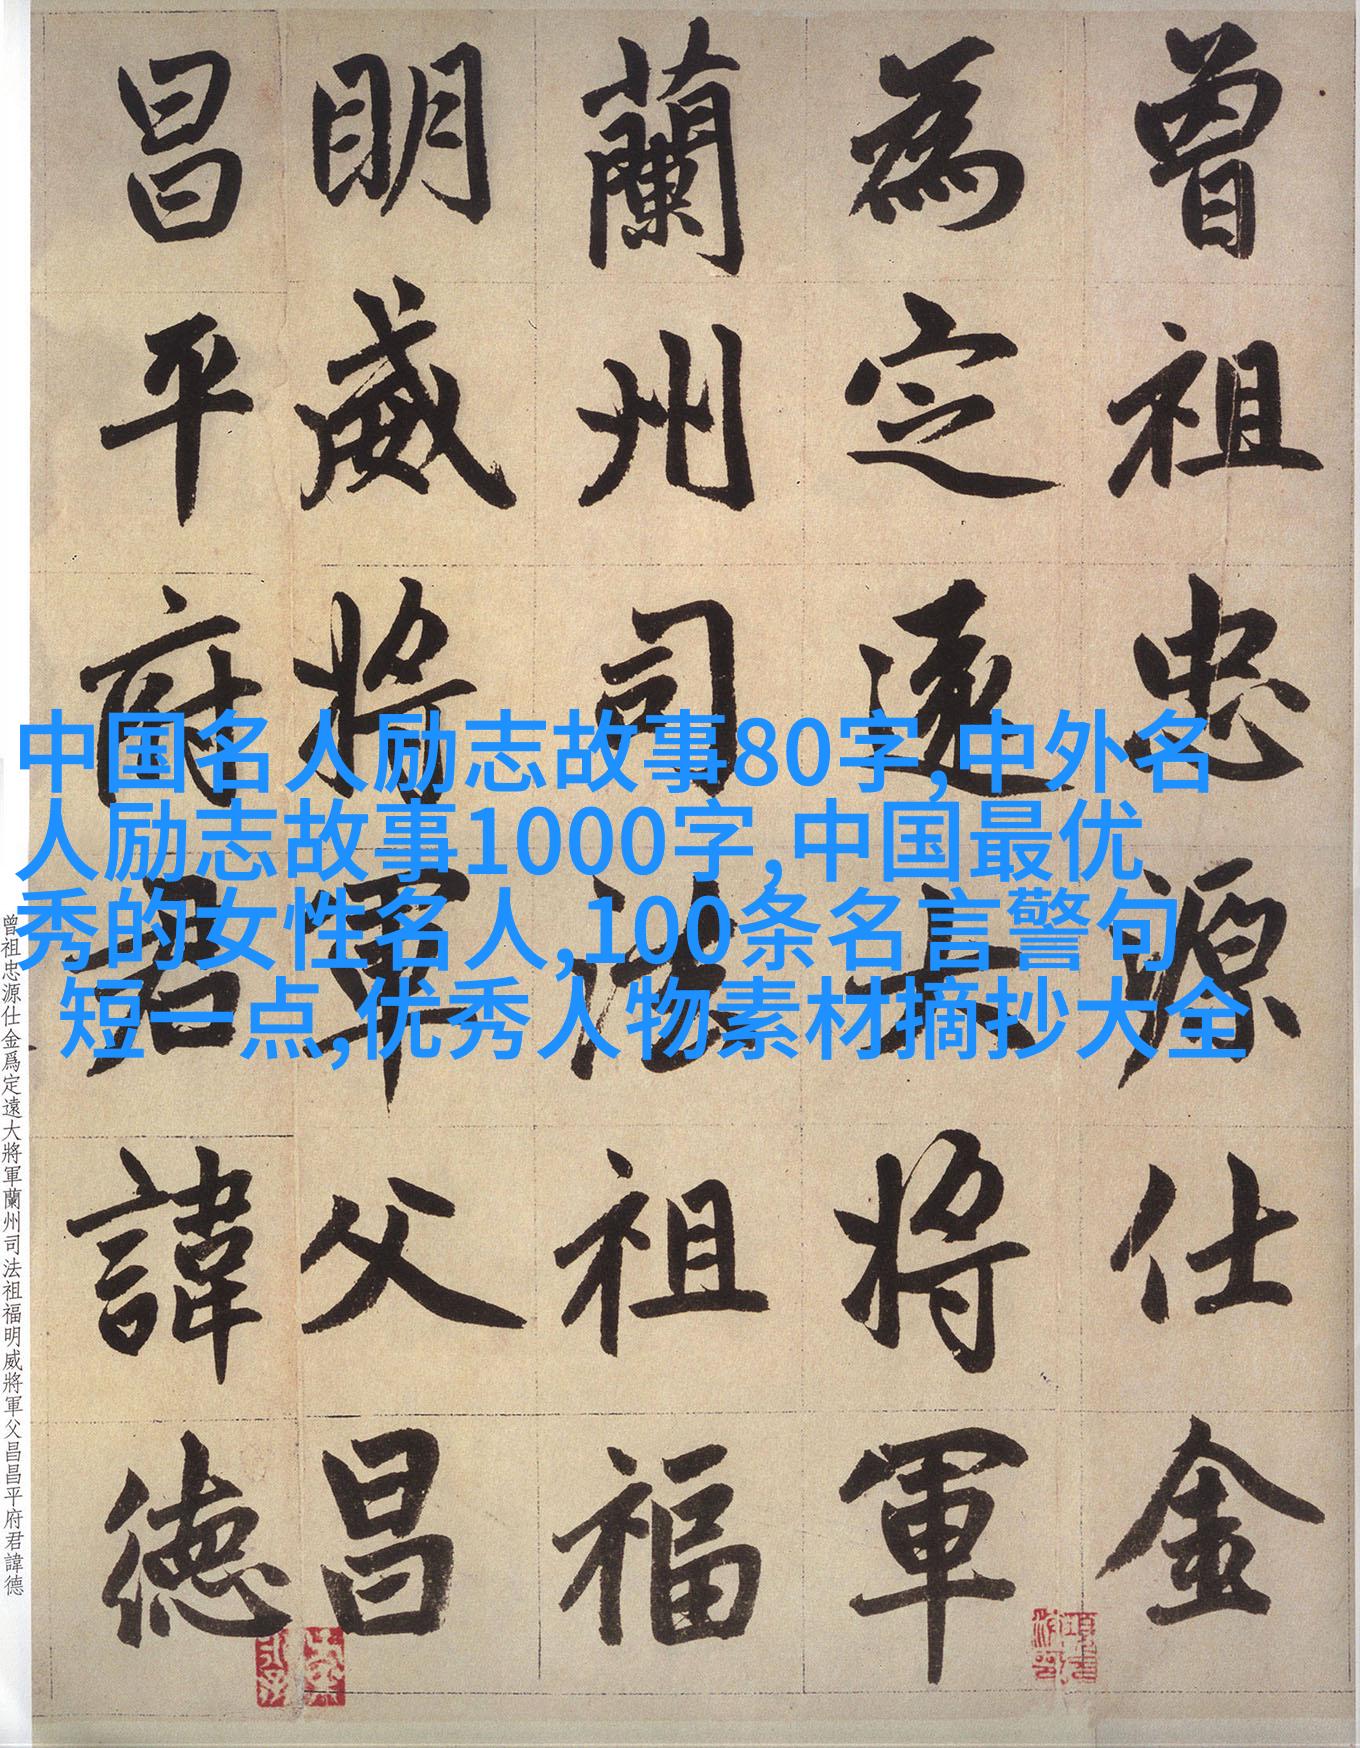 曾祖忠源仕金
為定遠大將軍
蘭州司法祖福
明威將軍父昌
昌平府君諱德
中国名人励志故事80字,中外名
人励志故事1000字,中国最优
秀的女性名人,100条名言警句
短一点,优秀人物素材摘抄大全
曾祖忠源仕金爲定遠大將軍蘭州司法祖福明威將軍父昌昌平府君諱德